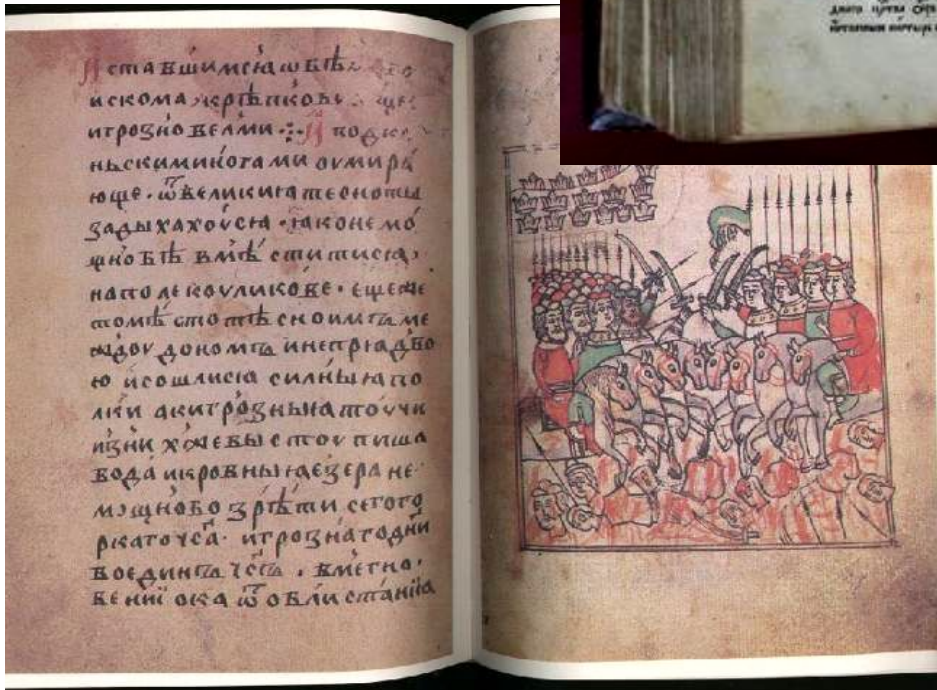 ставшимсѧ ѡбѣ
искома. крѣпко
игрозно велми ⁘
ньскиминогами оумира
юще. ѿ великиѩ тесноты
задыхахоусѧ. ꙗконемо
щно бѣ вмѣститисѧ,
наполекоуликове. еще
томѣсто тѣсно
доу дономъ инепрѧдво
ю исошлисѧ силныꙗ по
лки акигрозныꙗ тоучи
изних же
вода икровныꙗ езера не
мощнобо зрѣти сегого
ркаточса. игрознагодни
воединъ чсъ. вмегно
вении ока ѿ облистаниꙗ